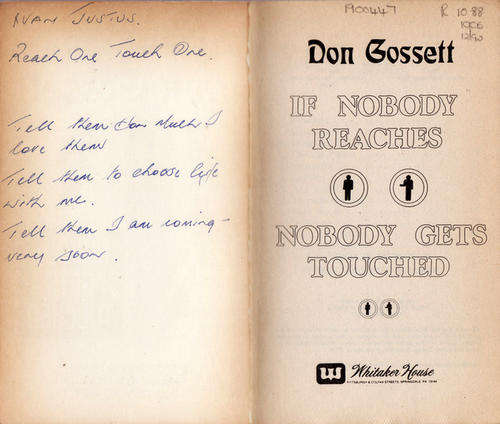 IVAN JUSTUS.
Reach One Touch One.
Tell them how much I
love them
Tell them to choose life
with me.
Tell them I am coming -
very soon.
R 10.88
1906
12/90
Don Gossett
IF NOBODY
REACHES
NOBODY GETS
TOUCHED
W Whitaker House
PITTSBURGH & COLFAX STREETS, SPRINGDALE, PA 15144